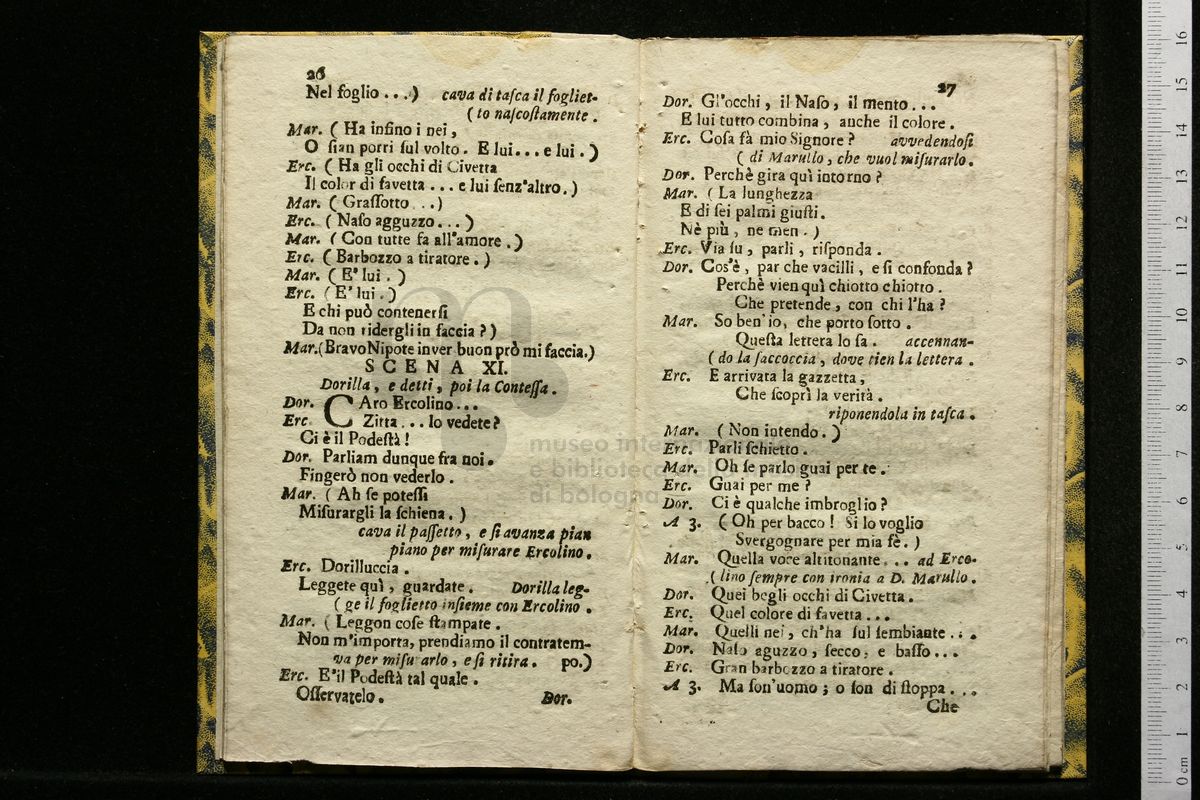 26
Nel foglio . . .) cava di taſca il fogliet-
( to naſcoſtamente .
Mar. ( Ha infino i nei ,
O ſian porri ſul volto. E lui... e lui .)
Erc. ( Ha gli occhi di Civetta
Il color di favetta ... e lui ſenz'altro.)
Mar. ( Graſſotto ...)
Erc. ( Naſo agguzzo... )
Mar. ( Con tutte fa all'amore .)
Erc. ( Barbozzo a tiratore . )
Mar. ( E' lui . )
Erc. ( E' lui . )
E chi può contenerſi
Da non ridergli in faccia ? )
Mar.(Bravo Nipote inver buon prò mi faccia.)
SCENA XI.
Dorilla, e detti, poi la Conteſſa.
Dor. CAro Ercolino...
Erc. Zitta... lo vedete?
Ci è il Podeſtà !
Dor. Parliam dunque fra noi.
Fingerò non vederlo .
Mar. ( Ah ſe poteſſi
Miſurargli la ſchiena. )
cava il paſſetto, e ſi avanza pian
piano per miſurare Ercolino.
Erc. Dorilluccia .
Leggete quì , guardate . Dorilla leg-
( ge il foglietto inſieme con Ercolino .
Mar. ( Leggon coſe ſtampate .
Non m'importa, prendiamo il contratem-
va per miſurarlo, e ſi ritira. po.)
Erc. E'il Podeſtà tal quale .
Oſſervatelo. Dor.
27
Dor. Gl'occhi , il Naſo , il mento...
E lui tutto combina , anche il colore .
Erc. Coſa fà mio Signore ? avvedendoſi
( di Marullo, che vuol miſurarlo.
Dor. Perchè gira quì intorno ?
Mar. ( La lunghezza
E di ſei palmi giuſti.
Nè più , ne men . )
Erc. Via ſu , parli , riſponda .
Dor. Cos'è , par che vacilli , e ſi confonda ?
Perchè vien quì chiotto chiotto .
Che pretende , con chi l'ha ?
Mar. So ben'io, che porto ſotto .
Queſta lettera lo ſa . accennan-
( do la ſaccoccia , dove tien la lettera .
Erc. E arrivata la gazzetta ,
Che ſcoprì la verità .
riponendola in taſca .
Mar. ( Non intendo. )
Erc. Parli ſchietto .
Mar. Oh ſe parlo guai per te .
Erc. Guai per me ?
Dor. Ci è qualche imbroglio ?
A 3. ( Oh per bacco ! Si lo voglio
Svergognare per mia fè. )
Mar. Quella voce altitonante ... ad Erco-
( lino ſempre con ironia a D. Marullo .
Dor. Quei begli occhi di Civetta .
Erc. Quel colore di favetta ...
Mar. Quelli nei , ch'ha ſul ſembiante ...
Dor. Naſo aguzzo , ſecco, e baſſo...
Erc. Gran barbozzo a tiratore .
A 3. Ma ſon'uomo ; o ſon di ſtoppa ...
Che
museo inter
e biblioteca
di bologna
0 cm 1 2 3 4 5 6 7 8 9 10 11 12 13 14 15 16